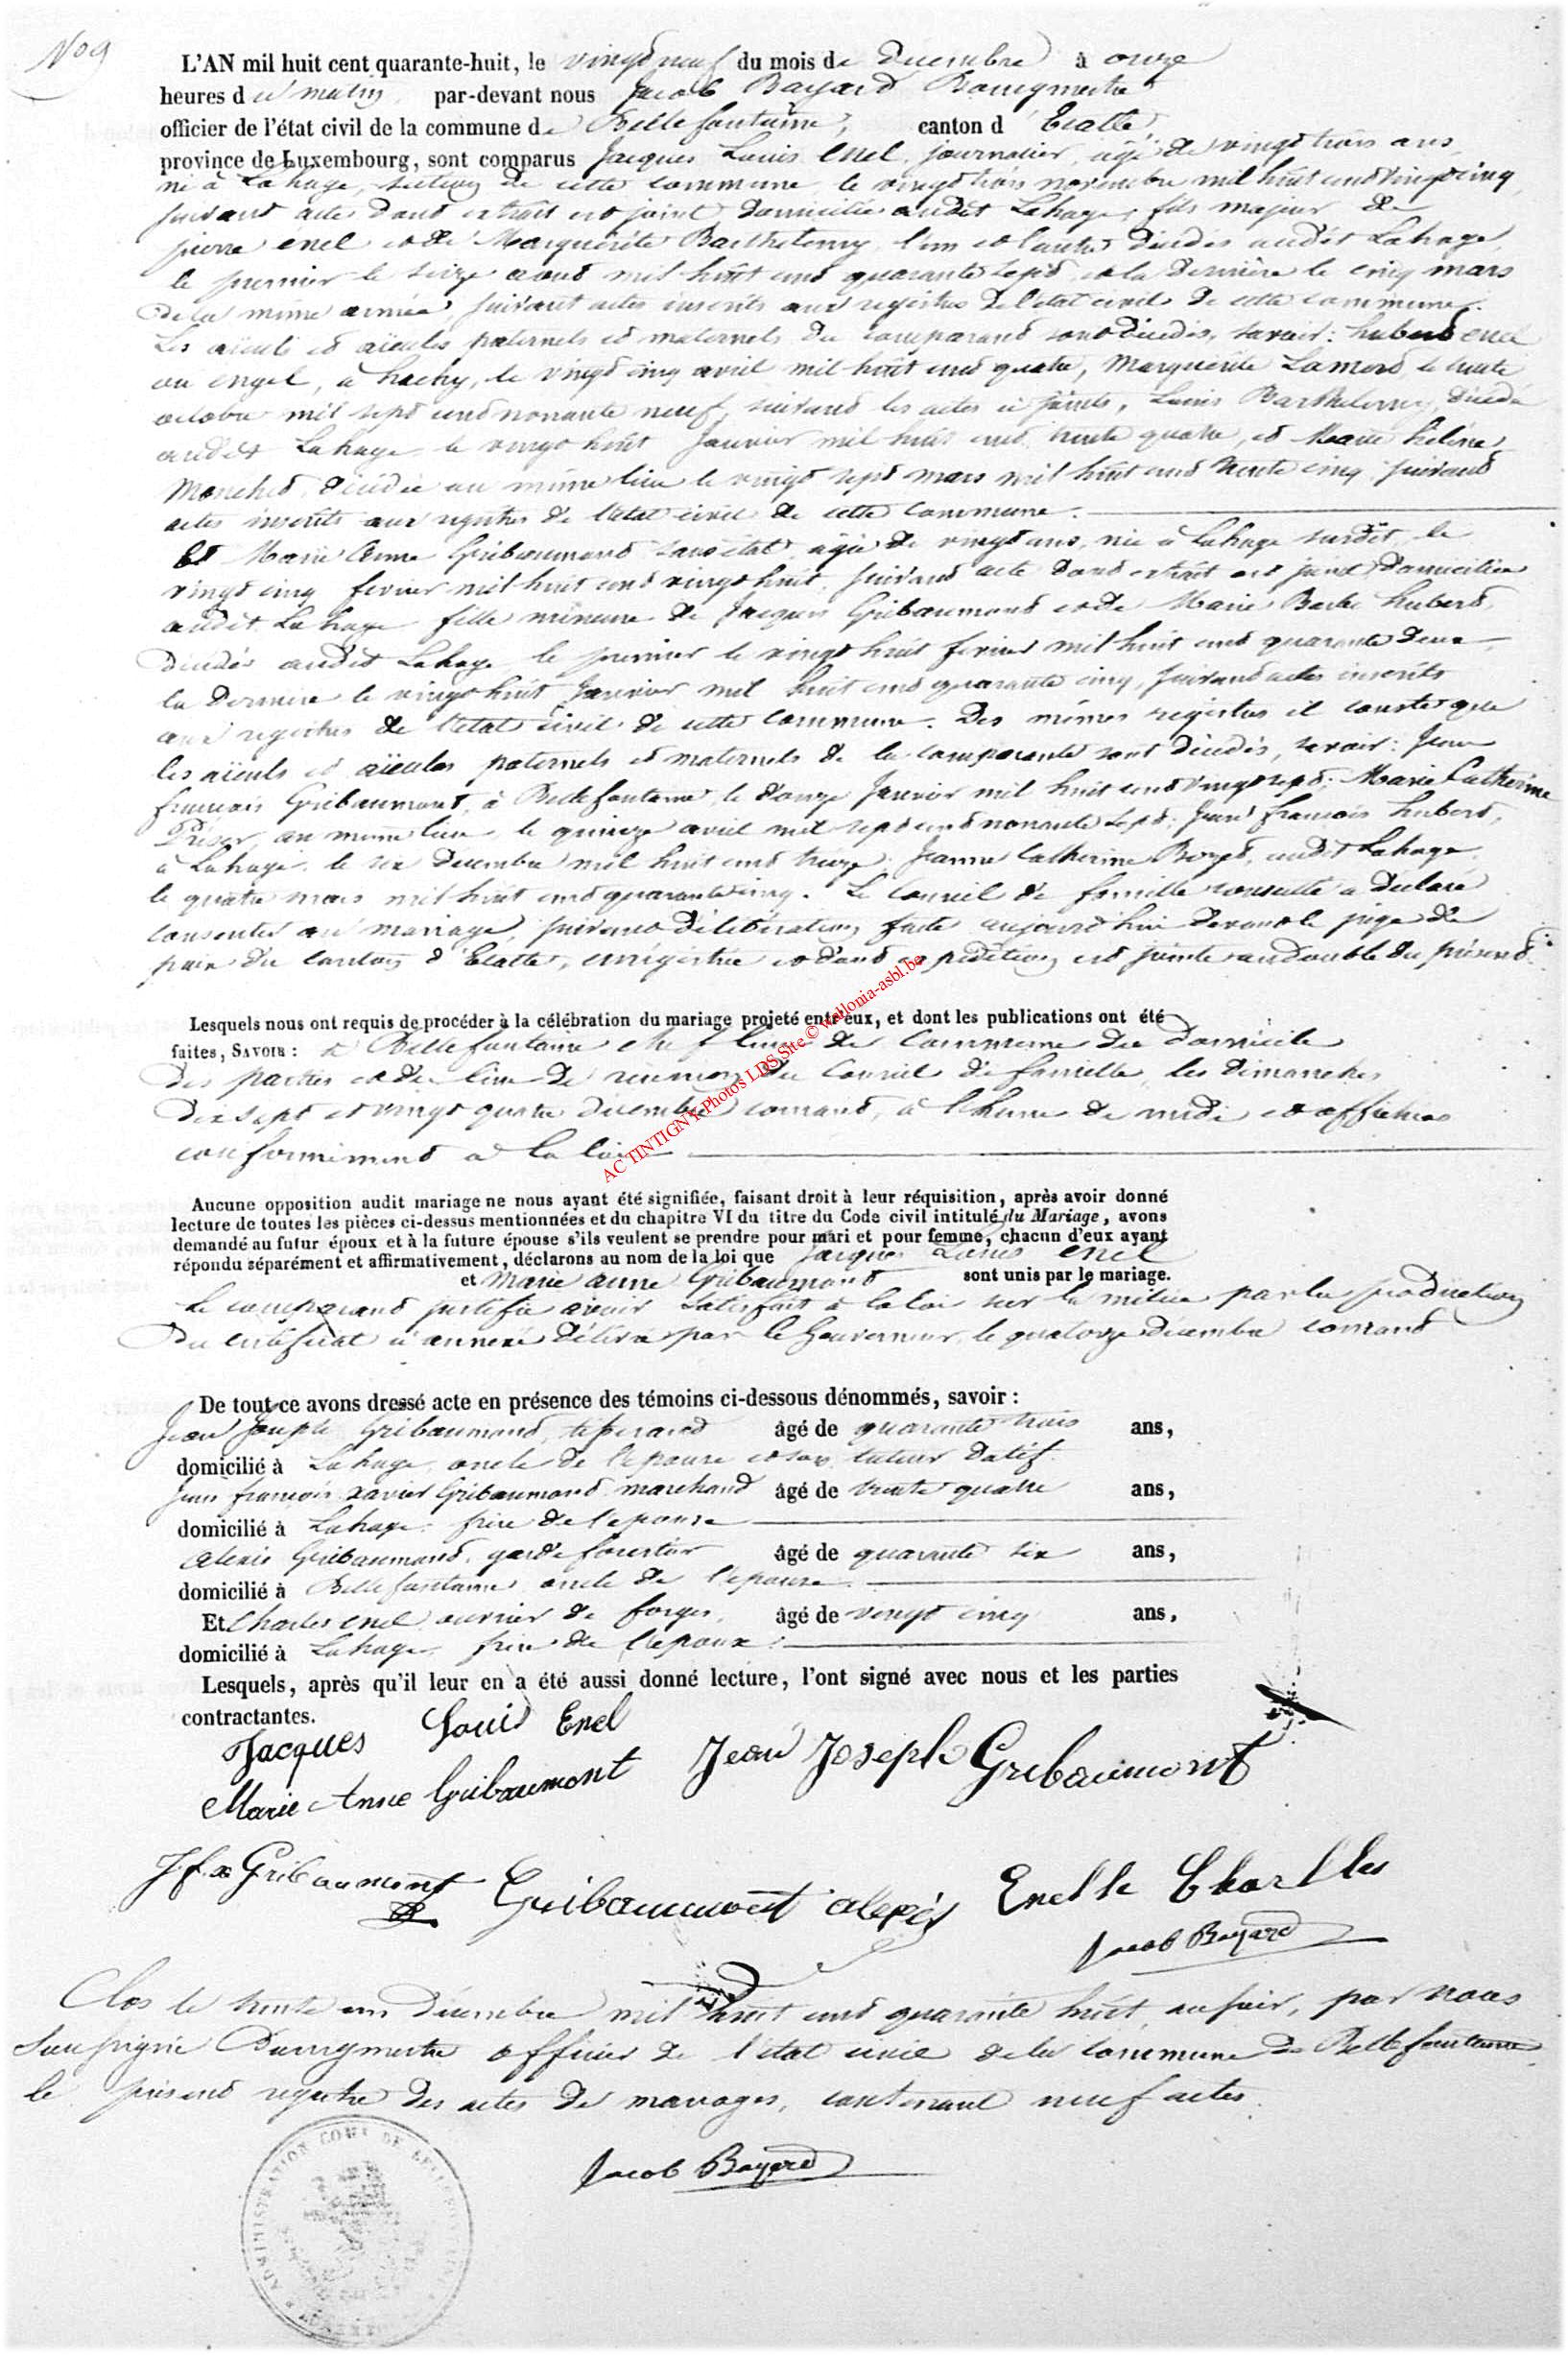 No 9
L'AN mil huit cent quarante-huit, le vingt neuf du mois de Decembre à onze
heures du matin, par-devant nous Jacob Bayard Bourgmestre
officier de l'état civil de la commune de Bellefontaine, canton d'Etalle,
province de Luxembourg, sont comparus Jacques Louis Enel, journalier, agé de vingt trois ans,
né à Lahage, section de cette commune, le vingt trois novembre mil huit cent vingt cinq,
suivant acte dont extrait est joint, domicilié audit Lahage, fils majeur de
pierre énel et de Marguerite Barthelemy, l'un et l'autre décédés audit Lahage,
le premier le seize aout mil huit cent quarante sept, et la dernière le cinq mars
de la même année, suivant actes inscrits aux registres de l'état civil de cette commune.
Les aïeuls et aïeules paternels et maternels du comparant sont décédés, savoir : hubert enel
ou engel, à hachy, le vingt cinq avril mil huit cent quatre, Marguerite Lamord, le trente
octobre mil sept cent nonante neuf, suivant les actes ci joints, Louis Barthelemy, décédé
audit Lahage le vingt huit Janvier mil huit cent trente quatre, et Marie hélène
Manchod, décédée au même lieu le vingt sept mars mil huit cent trente cinq, suivant
actes inscrits aux registres de l'état civil de cette commune.
Et Marie Anne Gribaumont sans état, agée de vingt ans, née à Lahage susdit, le
vingt cinq fevrier mil huit cent vingt huit, suivant acte dont extrait est joint, domiciliée
audit Lahage fille mineure de Jacques Gribaumont et de Marie Barbe hubert,
décédés audit Lahage le premier le vingt huit fevrier mil huit cent quarante deux
la dernière le vingt huit Janvier mil huit cent quarante cinq, suivant actes inscrits
aux registres de l'état civil de cette commune. Des mêmes registres il conste que
les aïeuls et aïeules paternels et maternels de la comparante sont décédés, savoir : Jean
françois Gribaumont, à Bellefontaine, le douze Janvier mil huit cent vingt sept; Marie Catherine
au même lieu le quinze avril mil sept cent nonante sept; Jean françois hubert,
à Lahage, le six Decembre mil huit cent treize; Jeanne Catherine audit Lahage
le quatre mars mil huit cent quarante cinq. Le Conseil de famille consulté a déclaré
consenter au mariage, suivant délibération faite aujourd'hui devant le juge de
paix du canton d'Etalle, enrégistrée et dont expédition est jointe au double du présent.
Lesquels nous ont requis de procéder à la célébration du mariage projeté entre eux, et dont les publications ont été
faites, SAVOIR : à Bellefontaine chef lieu de Commune du domicile
des parties et du lieu de réunion du Conseil de famille les dimanches
dix sept et vingt quatre décembre courant, à l'heure de midi et affichées
conformément à la loi
Aucune opposition audit mariage ne nous ayant été signifiée, faisant droit à leur réquisition, après avoir donné
lecture de toutes les pièces ci-dessus mentionnées et du chapitre VI du titre du Code civil intitulé du Mariage, avons
demandé au futur époux et à la future épouse s'ils veulent se prendre pour mari et pour femme, chacun d'eux ayant
répondu séparément et affirmativement, déclarons au nom de la loi que Jacques Louis Enel
et Marie anne Gribaumont sont unis par le mariage.
Le comparant justifie avoir satisfait à la loi sur la milice par la production
du certificat ci annexé délivré par le Gouverneur, le quatorze décembre courant
De tout ce avons dressé acte en présence des témoins ci-dessous dénommés, savoir :
Jean Joseph Gribaumont, tisserand âgé de quarante trois ans,
domicilié à Lahage, oncle de l'epouse et son tuteur datif.
Jean françois xavier Gribaumont marchand âgé de trente quatre ans,
domicilié à Lahage, frère de l'epouse
Alexis Gribaumont, garde forestier âgé de quarante six ans,
domicilié à Bellefontaine, oncle de l'epouse
Et Charles enel ouvrier de forges, âgé de vingt cinq ans,
domicilié à Lahage frère de l'epoux.
Lesquels, après qu'il leur en a été aussi donné lecture, l'ont signé avec nous et les parties
contractantes.
Jacques Louis Enel
Marie Anne Gribaumont Jean Joseph Gribaumont
J f x Gribaumont Gribaumont alexis Enelle Charlles
Jacob Bayard
Clos le trente un Décembre mil huit cent quarante huit, au soir, par nous
soussigné Bourgmestre officier de l'état civil de la commune de Bellefontaine
le présent registre des actes de mariages, contenant neuf actes.
Jacob Bayard
ADMINISTRATION COMLE DE BELLEFONTAINE
AC TINTIGNY-Photos LDS Site © wallonia-asbl.be